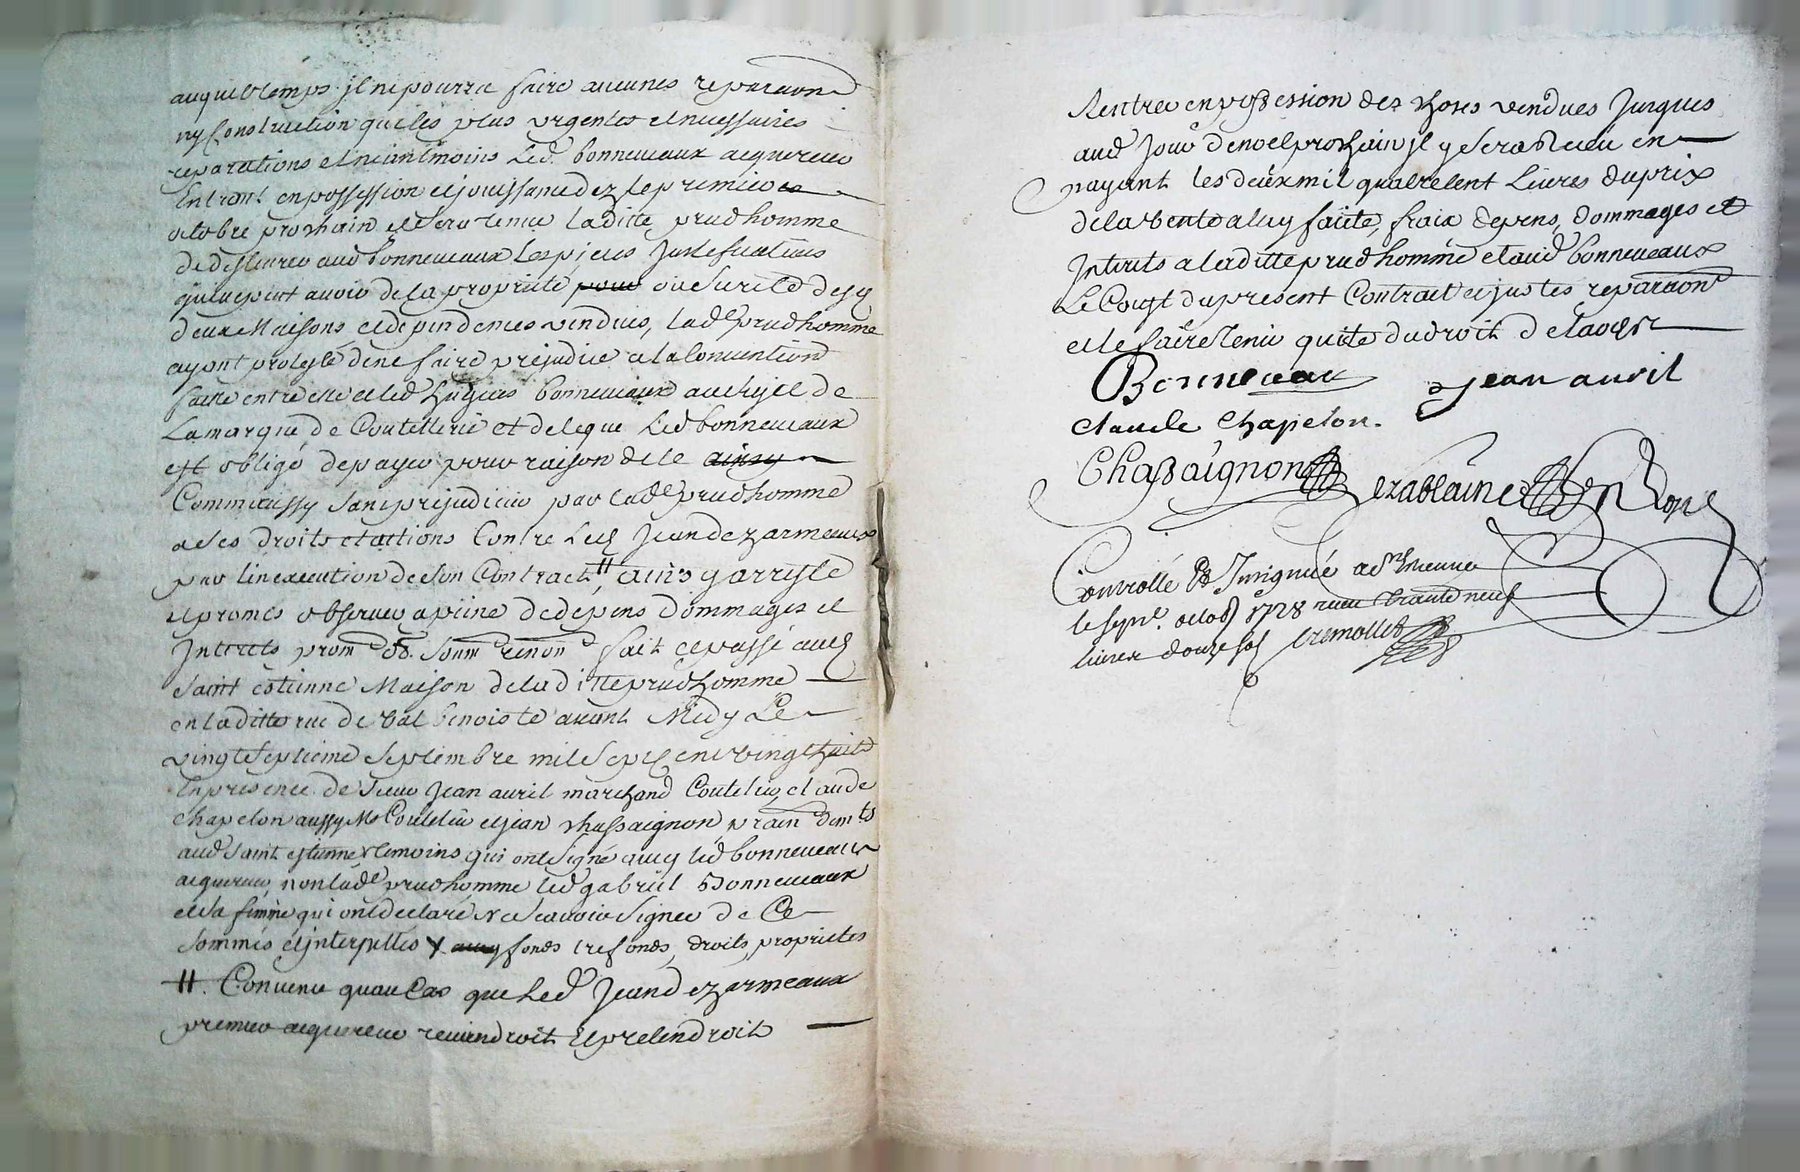 auquel temps il ne pourra faire aucunes reparaon
ny Construction que les plus urgentes et necessaires
reparations et neantmoins led. bonneveaux acquereur
Entrant en possession et jouissance dez le premier
octobre prochain et sera tenue laditte prudhomme
de deslivrer aud bonneveaux les pieces Justificatives
qu'elle peut avoir de la propriete ou sureté desd
deux Maisons et dependences vendues, lade prudhomme
ayant protesté de ne faire prejudice a la Convention
faite entre elle et led bonneveaux au sujet de
La marque de Coutellerie et de ce que Led bonneveaux
est obligé de payer pour raison de ce
Comm'aussy sans prejudicier par lade prudhomme
a ses droits et actions Contre Led Jean dezarmeaux
par l'inexecution de son Contract # ainsy arresté
et promis observer a peine de depens dommages et
Interets prom ob. soum renon fait et passé aud
saint estienne Maison de laditte prudhomme
en laditte rue de val benoiste avant Midy Le
vingt septieme septembre mil sept cent vingt huit
En presence de sieur Jean auril marchand Coutelier, claude
Chapelon aussy Me Coutelier et jean chassaignon prain demts
aud saint estienne temoins qui ont signé avec led bonneveaux
acquereur, non lade prudhomme led gabriel Bonneveaux
et sa femme qui ont declaré ne scavoir signer de Ce
sommés et interpellés fonds trefonds, droits, proprietes
#. Convenu qu'au Cas que Led Jean dezarmeaux
premier acquereur reviendroit et pretendroit
Rentrer en possession dez choses vendues Jusques
aud Jour de noel prochain il y sera recu en
payant les deux mil quatre Cent Livres du prix
de la vente a luy faite, fraix depens, dommages et
Interets a laditte prudhomme et aud bonneveaux
Le Coust du present Contract et justes reparaons
et le faire Tenir quitte du droit de
Bonneveaux Jean auril
Claude Chapelon.
Chassaignon
Controllé et Insignué a St Etienne
le sept. octob 1728 receu trante neuf
livres douze sol Cremollet